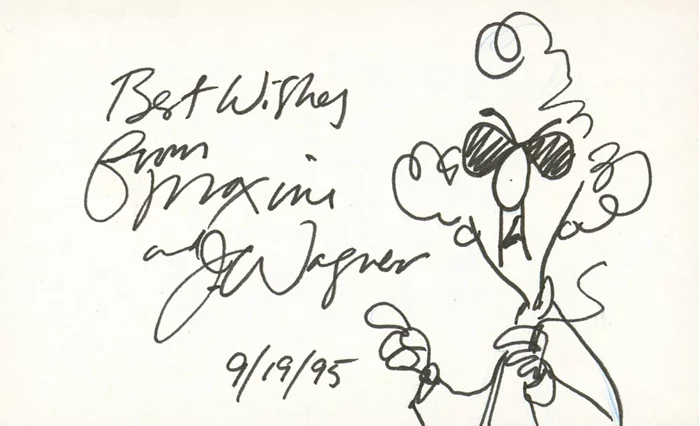 Best Wishes
from
Maxine
and J Wagner
9/19/95